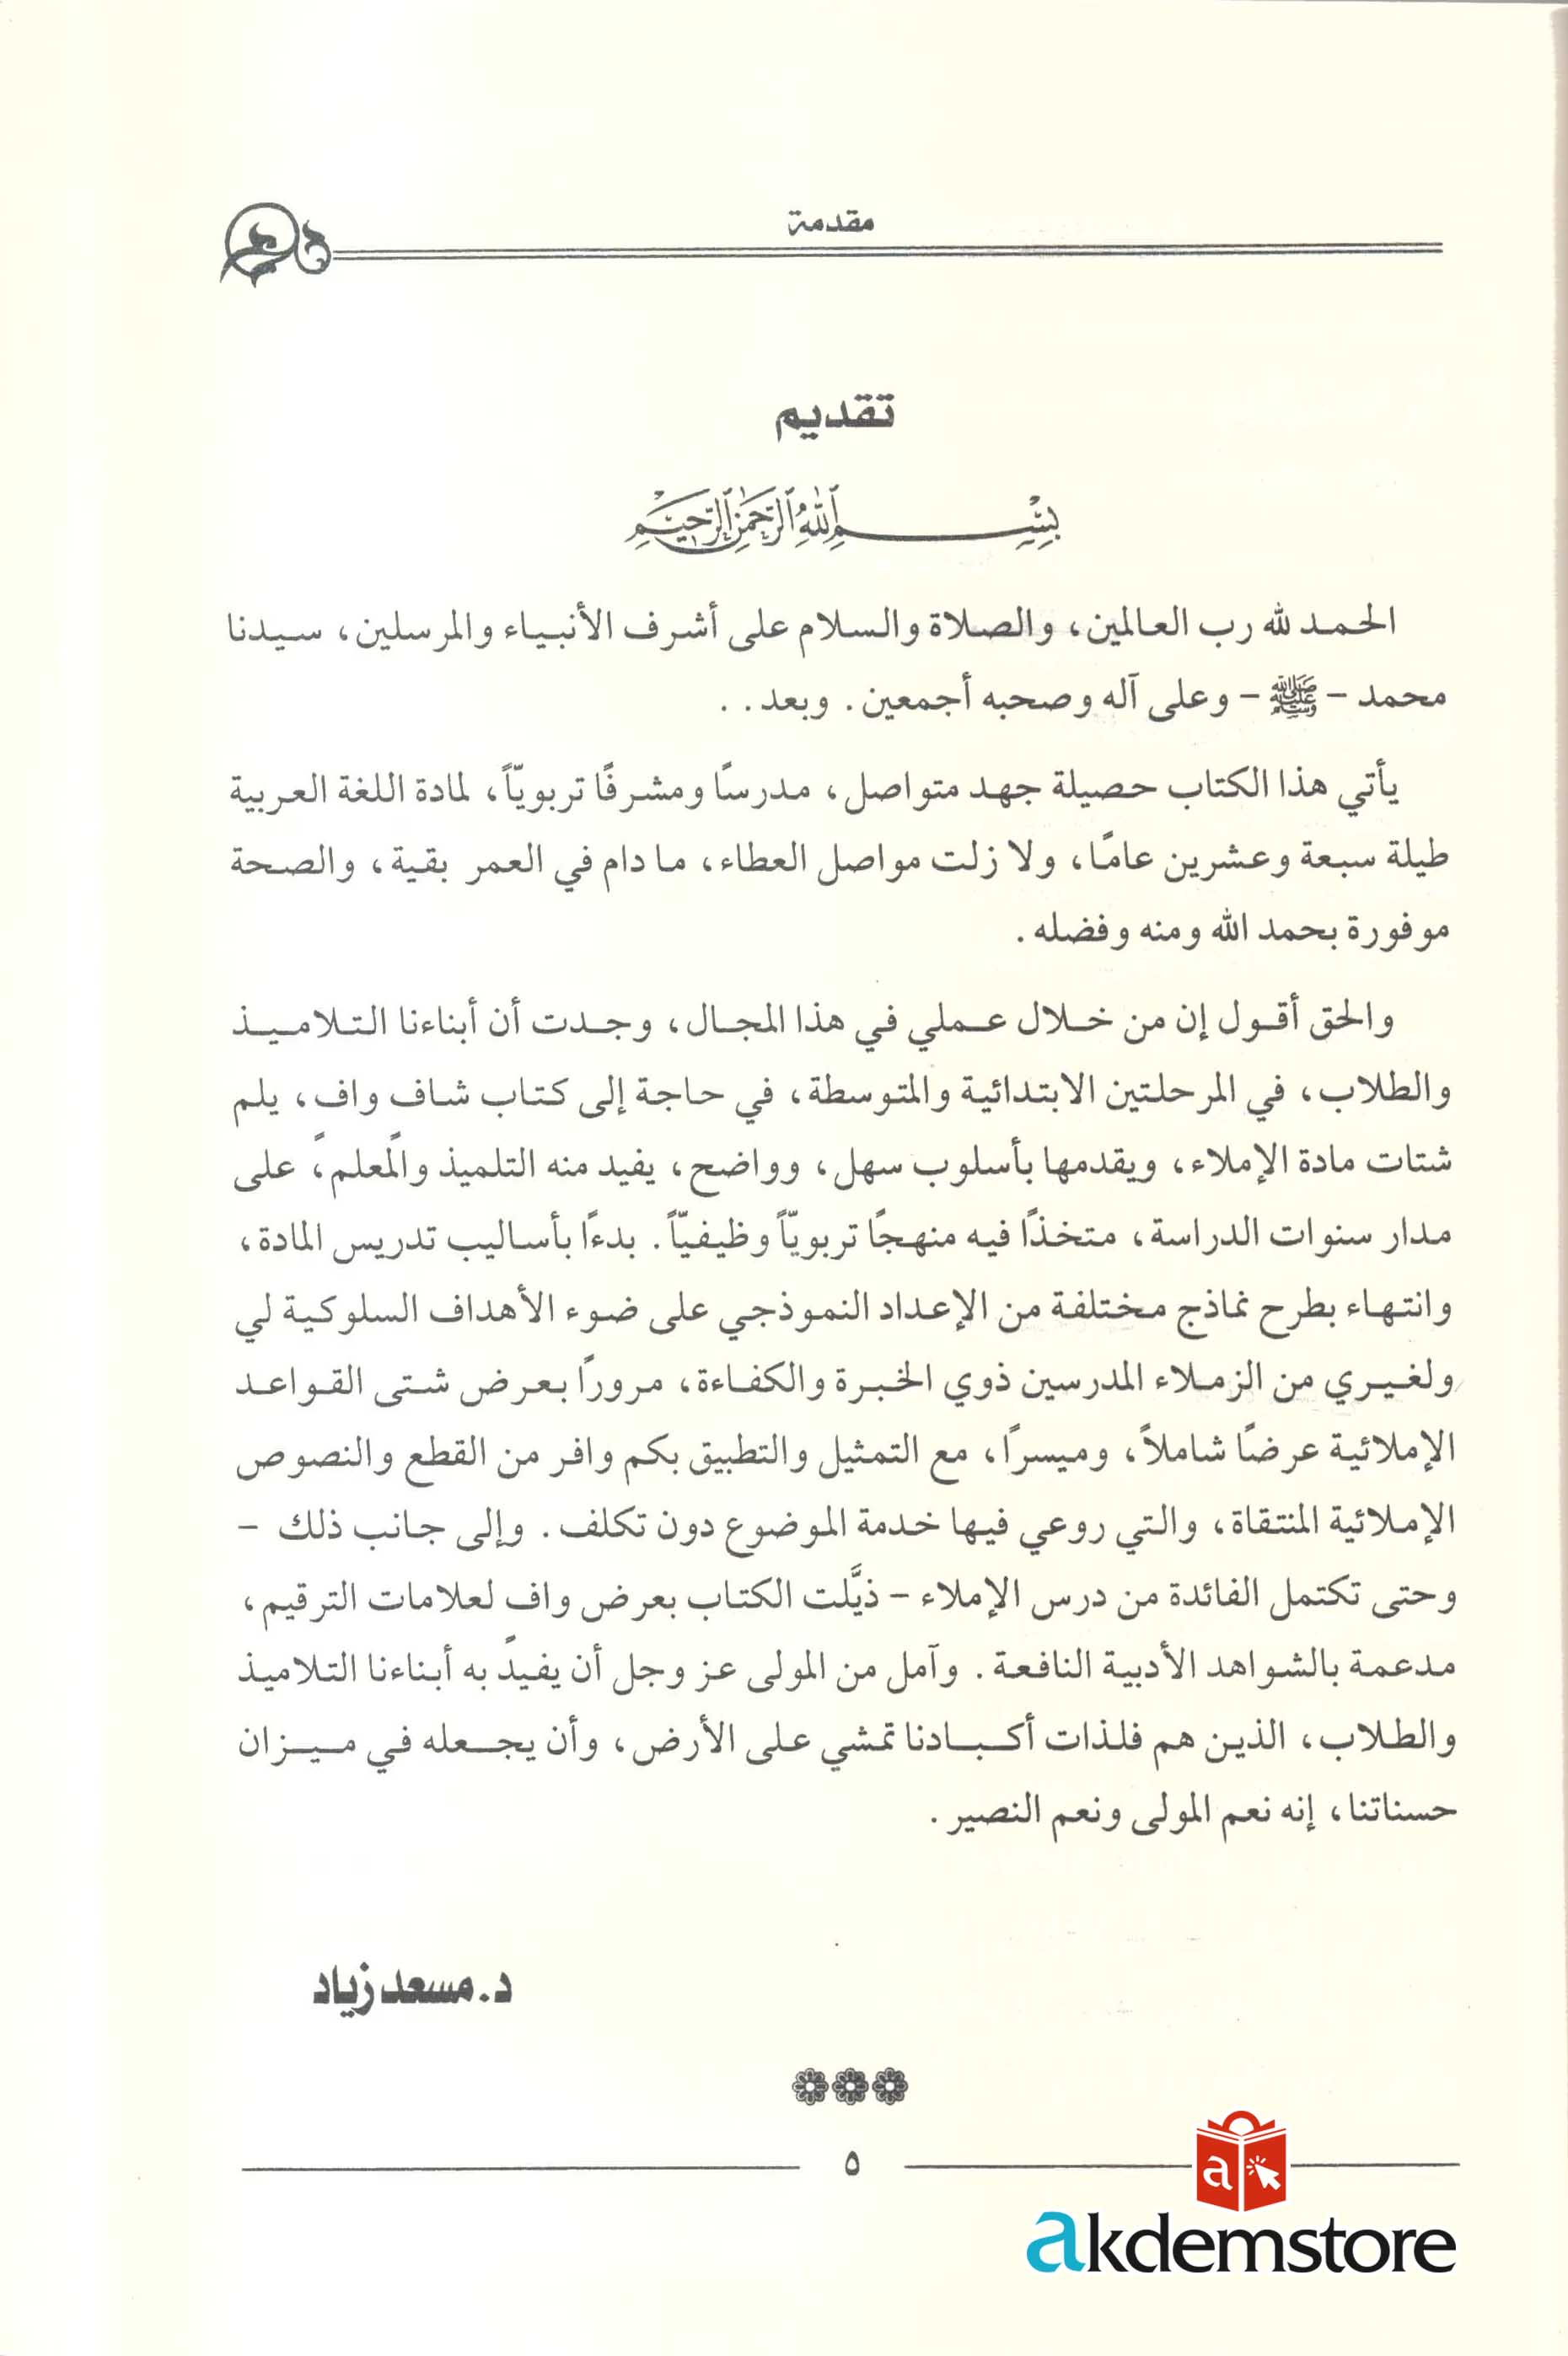 مقدمة
تقديم
بِسْمِ اللَّهِ الرَّحْمَٰنِ الرَّحِيمِ
الحمد لله رب العالمين، والصلاة والسلام على أشرف الأنبياء والمرسلين، سيدنا
محمد - ﷺ - وعلى آله وصحبه أجمعين. وبعد..
يأتي هذا الكتاب حصيلة جهد متواصل، مدرسًا ومشرفًا تربويّاً، لمادة اللغة العربية
طيلة سبعة وعشرين عامًا، ولا زلت مواصل العطاء، ما دام في العمر بقية، والصحة
موفورة بحمد الله ومنه وفضله.
والحق أقول إن من خلال عملي في هذا المجال، وجدت أن أبناءنا التلاميذ
والطلاب، في المرحلتين الابتدائية والمتوسطة، في حاجة إلى كتاب شاف واف، يلم
شتات مادة الإملاء، ويقدمها بأسلوب سهل، وواضح، يفيد منه التلميذ والمعلم، على
مدار سنوات الدراسة، متخذًا فيه منهجًا تربويّاً وظيفيّاً. بدءًا بأساليب تدريس المادة،
وانتهاء بطرح نماذج مختلفة من الإعداد النموذجي على ضوء الأهداف السلوكية لي
ولغيري من الزملاء المدرسين ذوي الخبرة والكفاءة، مرورًا بعرض شتى القواعد
الإملائية عرضًا شاملاً، وميسرًا، مع التمثيل والتطبيق بكم وافر من القطع والنصوص
الإملائية المنتقاة، والتي روعي فيها خدمة الموضوع دون تكلف. وإلى جانب ذلك -
وحتى تكتمل الفائدة من درس الإملاء - ذيَّلت الكتاب بعرض واف لعلامات الترقيم،
مدعمة بالشواهد الأدبية النافعة. وآمل من المولى عز وجل أن يفيد به أبناءنا التلاميذ
والطلاب، الذين هم فلذات أكبادنا تمشي على الأرض، وأن يجعله في ميزان
حسناتنا، إنه نعم المولى ونعم النصير.
د. مسعد زياد
٥
a
akdemstore